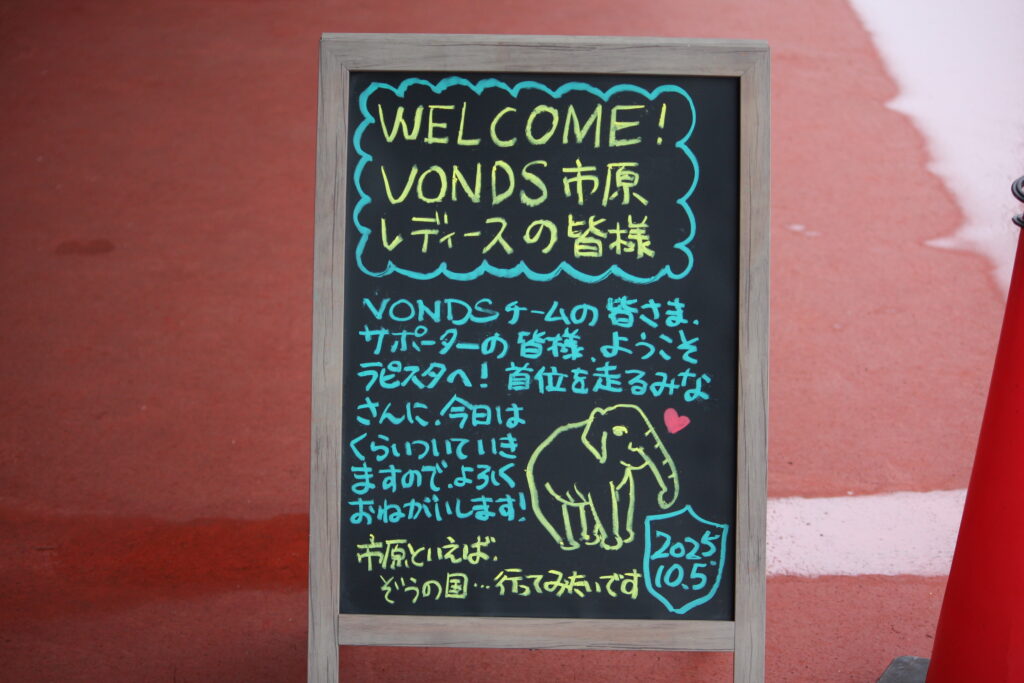 WELCOME!
VONDS市原
レディースの皆様
VONDSチームの皆さま、
サポーターの皆様、ようこそ
ラピスタへ!首位を走るみな
さんに、今日は
くらいついていき
ますので、よろしく
おねがいします!
市原といえば、
ぞうの国…行ってみたいです
2025
10.5